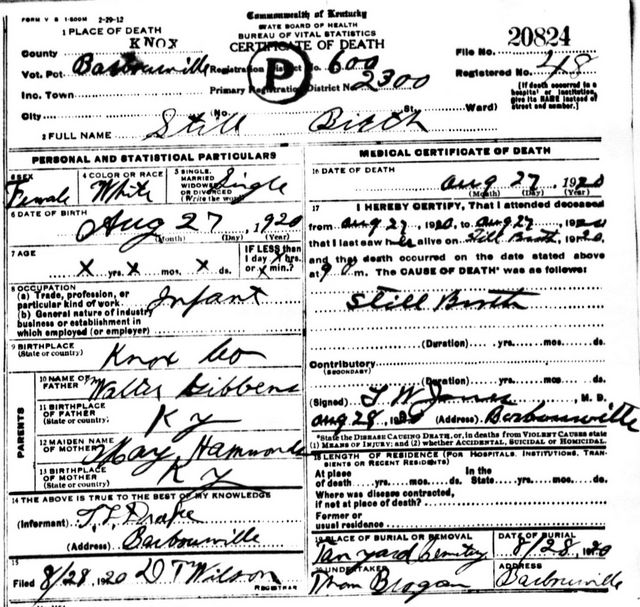 FORM V S 1-500M 2-29-12
Commonwealth of Kentucky
STATE BOARD OF HEALTH
BUREAU OF VITAL STATISTICS
CERTIFICATE OF DEATH
1 PLACE OF DEATH
County KNOX
File No. 20824
Vot. Pct Barbourville Registration District No. 600
Registered No. 48
Inc. Town
Primary Registration District No. 2300
P
[If death occurred in a hospital or institution, give its NAME instead of street and number.]
City (No. St. Ward)
2 FULL NAME Still Birth
PERSONAL AND STATISTICAL PARTICULARS
3 SEX Female
4 COLOR OR RACE White
5 SINGLE, MARRIED WIDOWED OR DIVORCED (Write the word) Single
6 DATE OF BIRTH Aug 27, 1920
(Month) (Day) (Year)
7 AGE X yrs. X mos. X ds.
IF LESS than 1 day X hrs. or X min.?
8 OCCUPATION
(a) Trade, profession, or particular kind of work
(b) General nature of industry business or establishment in which employed (or employer)
Infant
9 BIRTHPLACE (State or country) Knox Co
PARENTS
10 NAME OF FATHER Walter Gibbens
11 BIRTHPLACE OF FATHER (State or country) Ky
12 MAIDEN NAME OF MOTHER May Hammonds
13 BIRTHPLACE OF MOTHER (State or country) Ky
14 THE ABOVE IS TRUE TO THE BEST OF MY KNOWLEDGE
(Informant) Drake
(Address) Barbourville
15
Filed 8/28, 1920 D T Wilson
REGISTRAR
MEDICAL CERTIFICATE OF DEATH
16 DATE OF DEATH
Aug 27 1920
(Month) (Day) (Year)
17 I HEREBY CERTIFY, That I attended deceased
from Aug 27, 1920, to Aug 27, 1920
that I last saw h alive on Still Birth, 1920
and that death occurred on the date stated above
at 9 m. The CAUSE OF DEATH* was as follows:
Still Birth
(Duration) yrs. mos. ds.
Contributory
(SECONDARY)
(Duration) yrs. mos. ds.
(Signed) T W Jones, M. D.
Aug 28, 1920 (Address) Barbourville
*State the DISEASE CAUSING DEATH, or, in deaths from VIOLENT CAUSES state (1) MEANS OF INJURY; and (2) whether ACCIDENTAL, SUICIDAL OR HOMICIDAL
18 LENGTH OF RESIDENCE (FOR HOSPITALS, INSTITUTIONS, TRANSIENTS OR RECENT RESIDENTS)
At place of death yrs. mos. ds. In the State yrs. mos. ds.
Where was disease contracted, if not at place of death?
Former or usual residence
19 PLACE OF BURIAL OR REMOVAL Tanyard Cemetery
DATE OF BURIAL 8/28, 1920
20 UNDERTAKER Thom Brogan
ADDRESS Barbourville